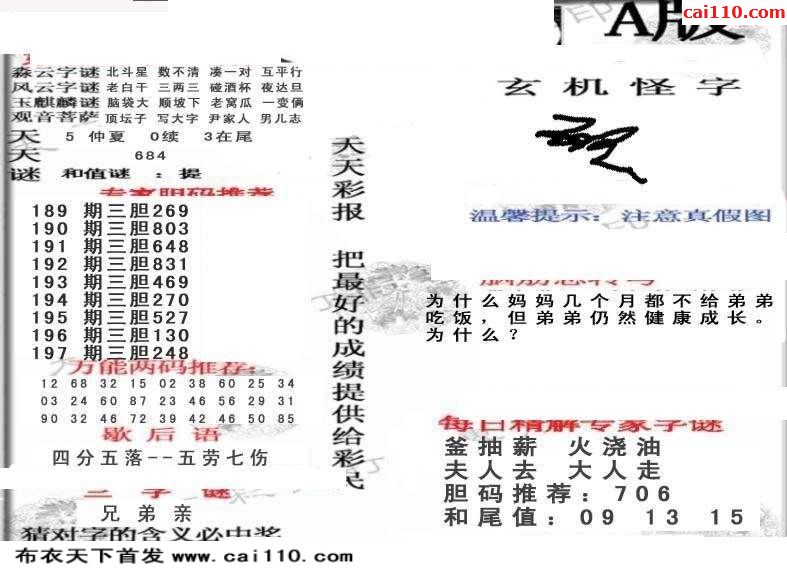 A版
cai110.com
森云字谜 北斗星 数不清 凑一对 互平行
风云字谜 老白干 三两三 碰酒杯 夜达旦
玉麒麟谜 脑袋大 顺坡下 老窝瓜 一变俩
观音菩萨 顶坛子 写大字 尹家人 男儿志
天 5 仲夏 0续 3在尾
天 684
谜 和值谜 : 提
专家胆码推荐
189 期三胆269
190 期三胆803
191 期三胆648
192 期三胆831
193 期三胆469
194 期三胆270
195 期三胆527
196 期三胆130
197 期三胆248
万能两码推荐:
12 68 32 15 02 38 60 25 34
03 24 60 87 23 46 56 29 31
90 32 46 72 39 42 46 50 85
歇后语
四分五落--五劳七伤
三字谜
兄弟亲
猜对字的含义必中奖
布衣天下首发 www.cai110.com
天天彩报 把最好的成绩提供给彩民
玄机怪字
温馨提示: 注意真假图
脑筋急转弯
为什么妈妈几个月都不给弟弟
吃饭，但弟弟仍然健康成长。
为什么？
每日精解专家字谜
釜抽薪 火浇油
夫人去 大人走
胆码推荐: 706
和尾值: 09 13 15